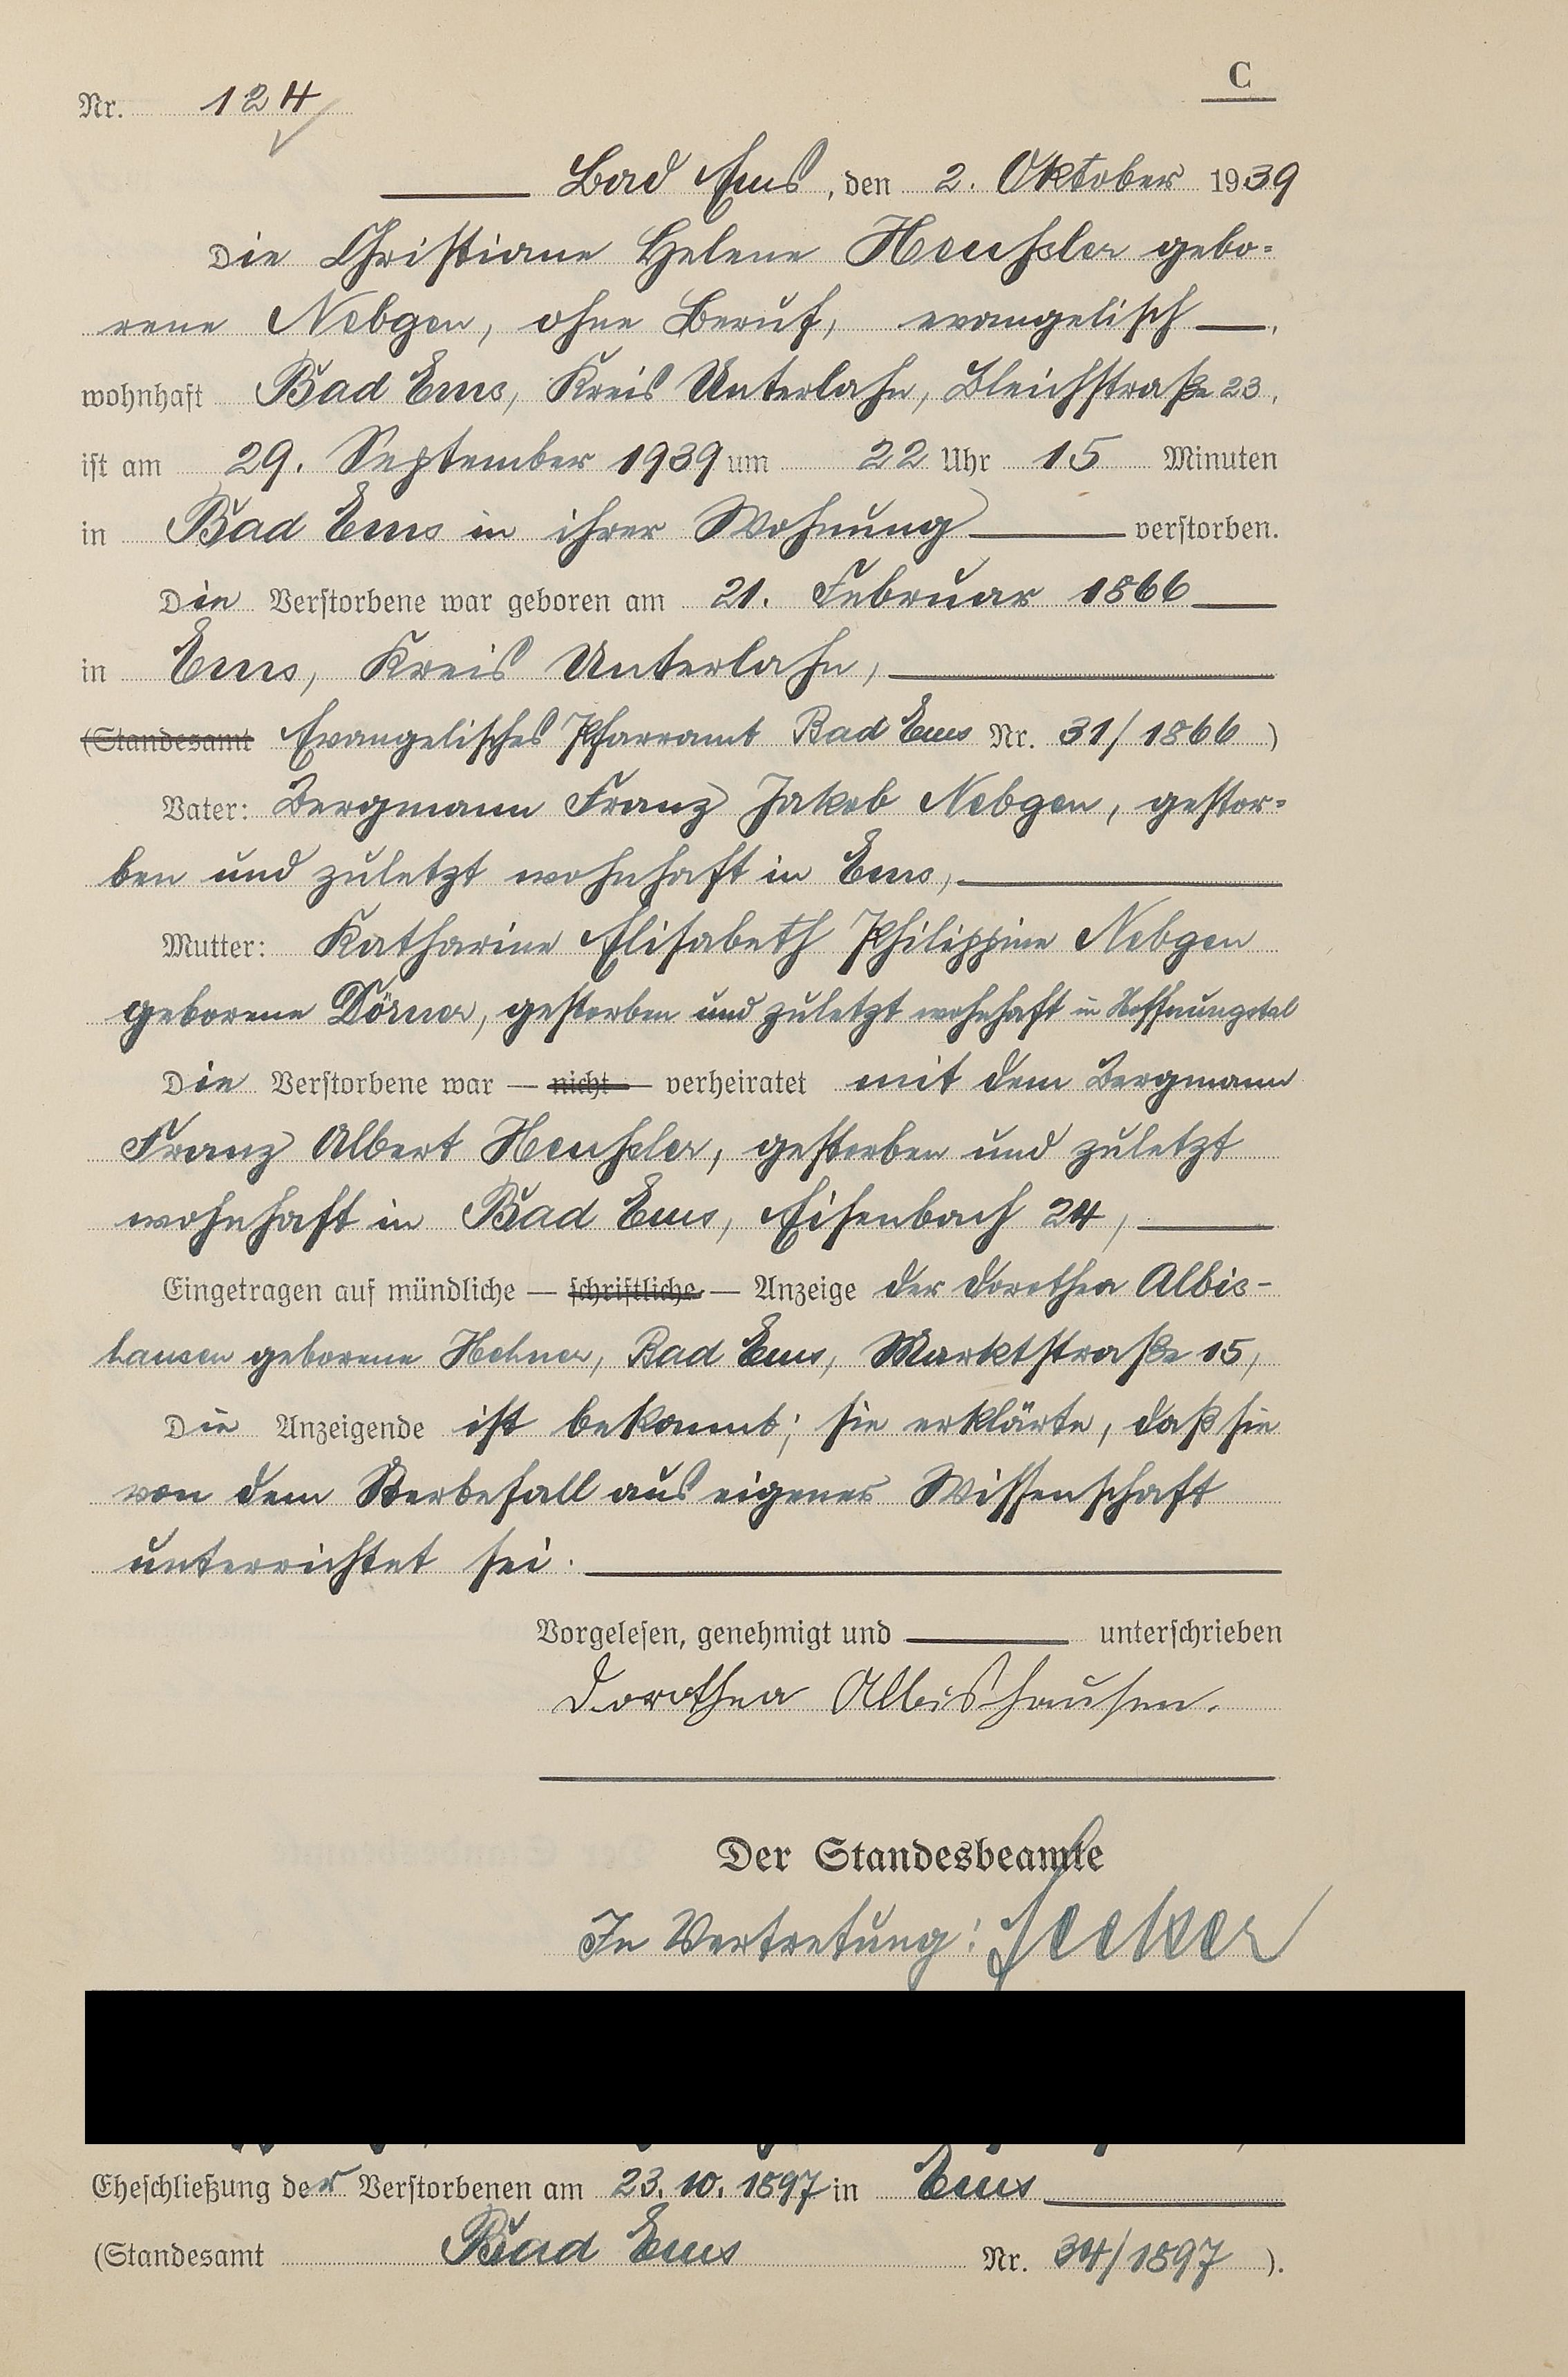 C
Nr. 124
Bad Ems, den 2. Oktober 1939
Die Christiane Helene Heußler gebo=
rene Nebgen, ohne Beruf, evangelisch,
wohnhaft Bad Ems, Kreis Unterlahn, Bleichstraße 23,
ist am 29. September 1939 um 22 Uhr 15 Minuten
in Bad Ems in ihrer Wohnung verstorben.
Die Verstorbene war geboren am 21. Februar 1866
in Ems, Kreis Unterlahn,
(Standesamt Evangelisches Pfarramt Bad Ems Nr. 31/1866)
Vater: Bergmann Franz Jakob Nebgen, gestor=
ben und zuletzt wohnhaft in Ems,
Mutter: Katharine Elisabeth Philippine Nebgen
geborene Dörner, gestorben und zuletzt wohnhaft in Hoffnungstal
Die Verstorbene war — nicht — verheiratet mit dem Bergmann
Franz Albert Heußler, gestorben und zuletzt
wohnhaft in Bad Ems, Eisenbach 24,
Eingetragen auf mündliche — schriftliche — Anzeige der Dorothea Albis-
hausen geborene Hehner, Bad Ems, Marktstraße 15,
Die Anzeigende ist bekannt; sie erklärte, daß sie
von dem Sterbefall aus eigener Wissenschaft
unterrichtet sei.
Vorgelesen, genehmigt und unterschrieben
Dorothea Albishausen.
Der Standesbeamte
In Vertretung:
Eheschließung der Verstorbenen am 23.10.1897 in Ems
(Standesamt Bad Ems Nr. 34/1897).